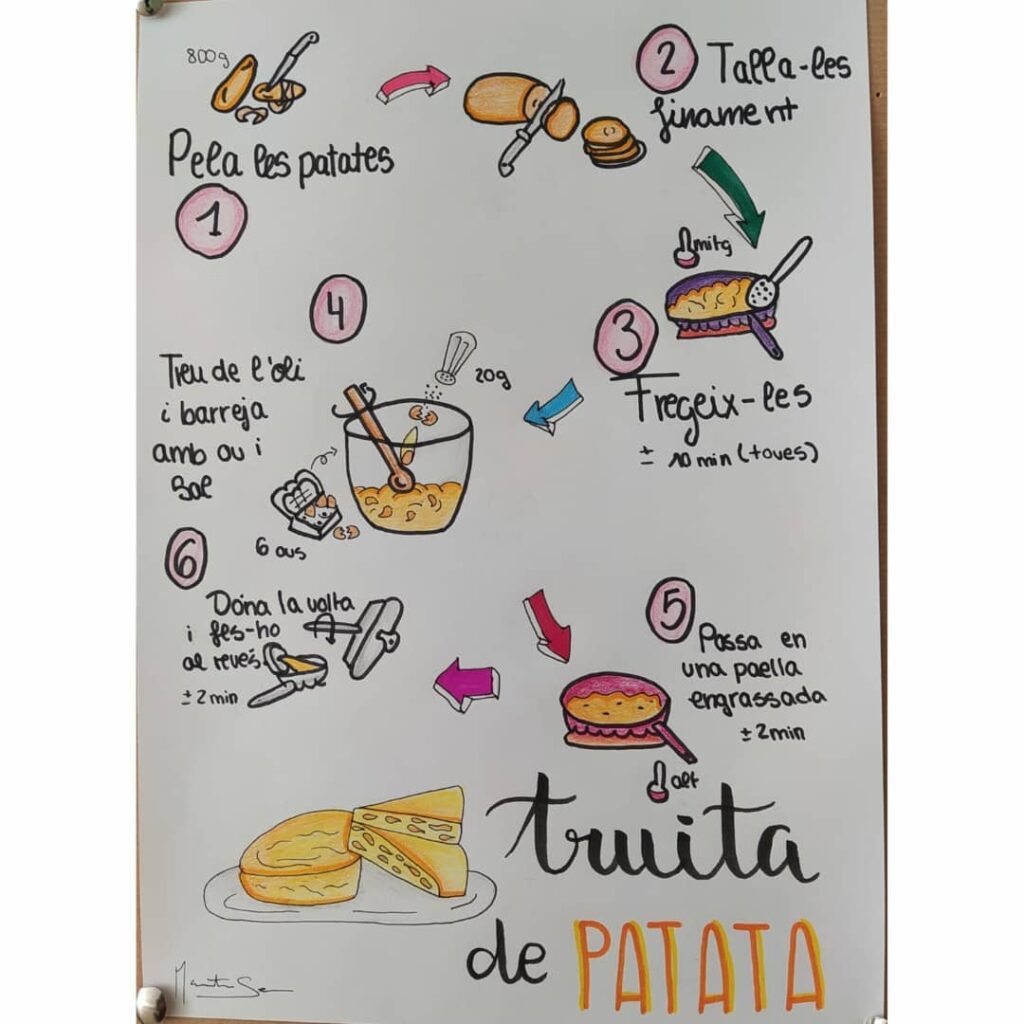 800g
Pela les patates
1
2
Talla-les
finament
mitg
3
Fregeix-les
± 10 min (toves)
4
Treu de l'oli
i barreja
amb ou i
Sal
20g
6 ous
5
Passa en
una paella
engrassada
± 2min
alt
6
Dona la volta
i fes-ho
al revés
± 2 min
truita
de PATATA